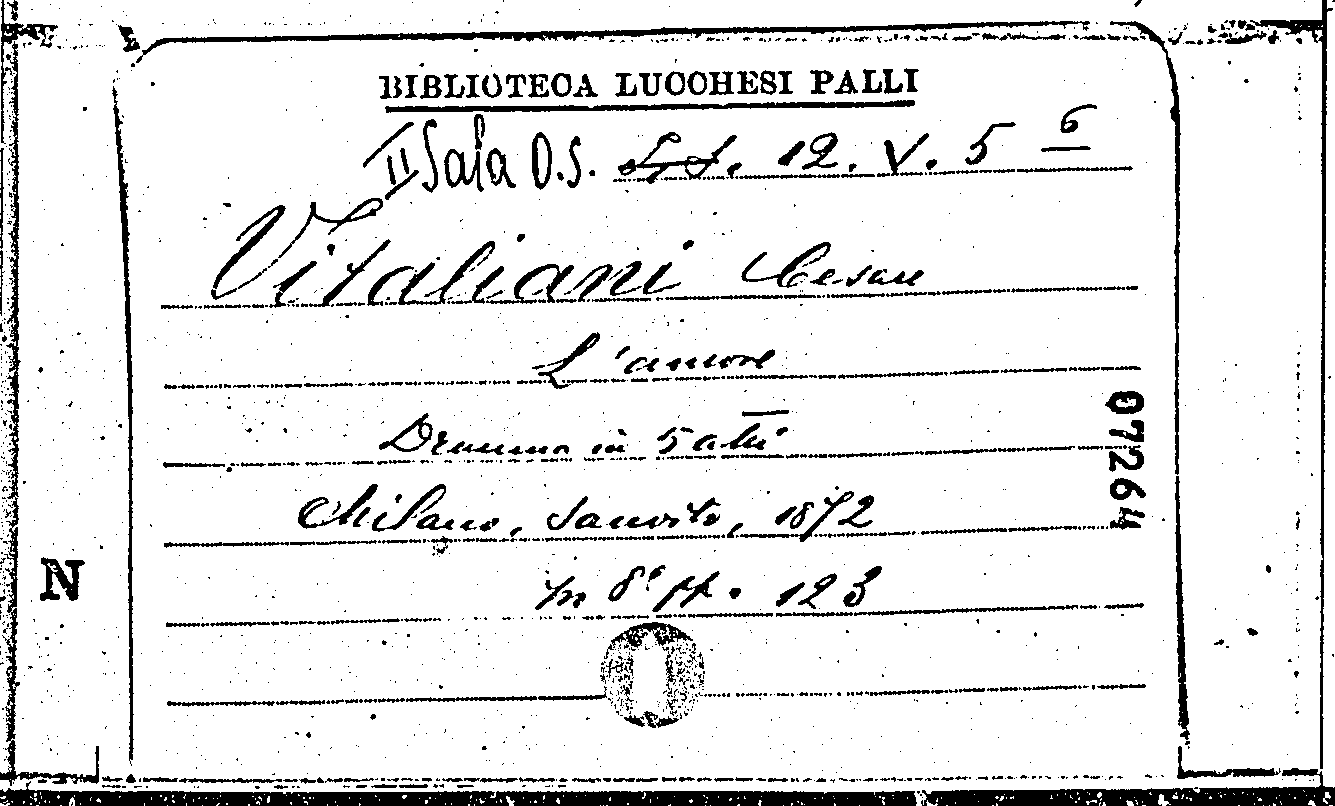 BIBLIOTECA LUCCHESI PALLI
II Sala O.S. 12. V. 5 6
Vitaliani Cesare
L'amore
Dramma in 5 atti
Milano, Sanvito, 1872
In 8° pp. 123
07264
N